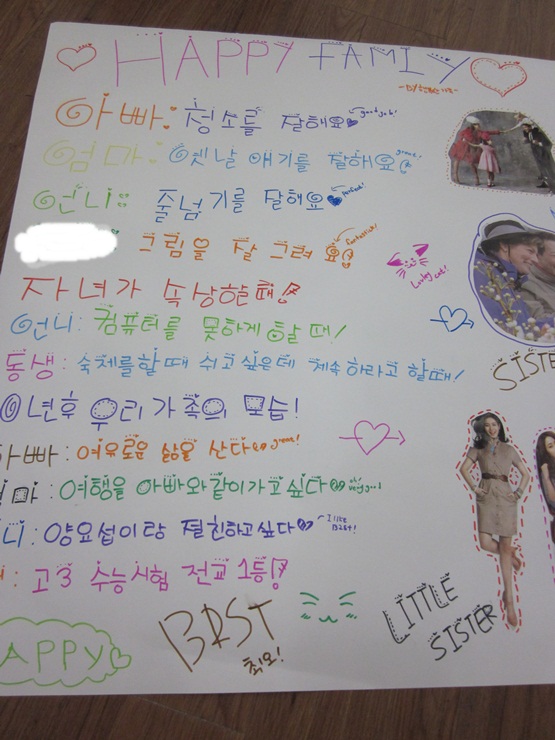 HAPPY FAMILY
아빠: 청소를 잘해요 good job!
엄마: 옛날 얘기를 잘해요 great!
언니: 줄넘기를 잘해요 perfect!
그림을 잘 그려요 fantastic!
Lucky cat!
자녀가 속상할때!
언니: 컴퓨터를 못하게 할 때!
동생: 숙체를할때 쉬고싶은데 계속하라고 할때!
SISTE
년후 우리가족의 모습!
아빠: 여유로운 삶을 산다 great!
마: 여행을 아빠와같이가고싶다 very good
니: 양요섭이랑 절친하고싶다 I like B2st!
: 고3 수능시험 전교 1등!
LITTLE
SISTER
APPY
B2ST
최오!